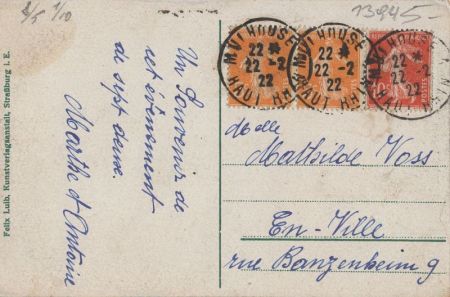 1/5 1/10
13945-
Un Souvenir de
cet évènement
de sept deux.
Marthe et Antoine
Felix Luib, Kunstverlagsanstalt, Straßburg i. E.
MULHOUSE
22 *
22 -2
22
HAUT RHIN
MULHOUSE
22 *
22 -2
22
HAUT RHIN
MULHOUSE
22 *
22 -2
22
HAUT RHIN
POSTES
Melle
Mathilde Voss
En-Ville
rue Banzenheim 9